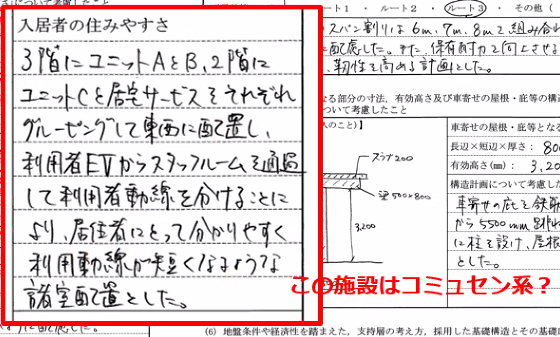 について考慮したこと
入居者の住みやすさ
3階にユニットAとB、2階に
ユニットCと居宅サービスをそれぞれ
グルーピングして東西に配置し、
利用者EVからスタッフルームを通過
して利用者動線を分けることに
より、居住者にとって分かりやすく
利用動線が短くなるような
諸室配置とした。
ート1 ・ ルート2 ・ ルート3 ・ その他（
スパン割りは6m、7m、8mで組み合わ
に配慮した。また、保有耐力を向上させる
、靭性を高める計画とした。
なる部分の寸法、有効高さ及び車寄せの屋根・庇等の構造
ついて考慮したこと
のこと）】
車寄せの屋根・庇等となる
長辺×短辺×厚さ： 800
有効高さ(mm)： 3,20
構造計画について考慮した
車寄せの庇を鉄骨
から5500mm
に柱を設け、屋根
とした。
スラブ200
梁500×800
3,200
この施設はコミュセン系？
ように配慮した。
(6) 地盤条件や経済性を踏まえた、支持層の考え方、採用した基礎構造とその基礎